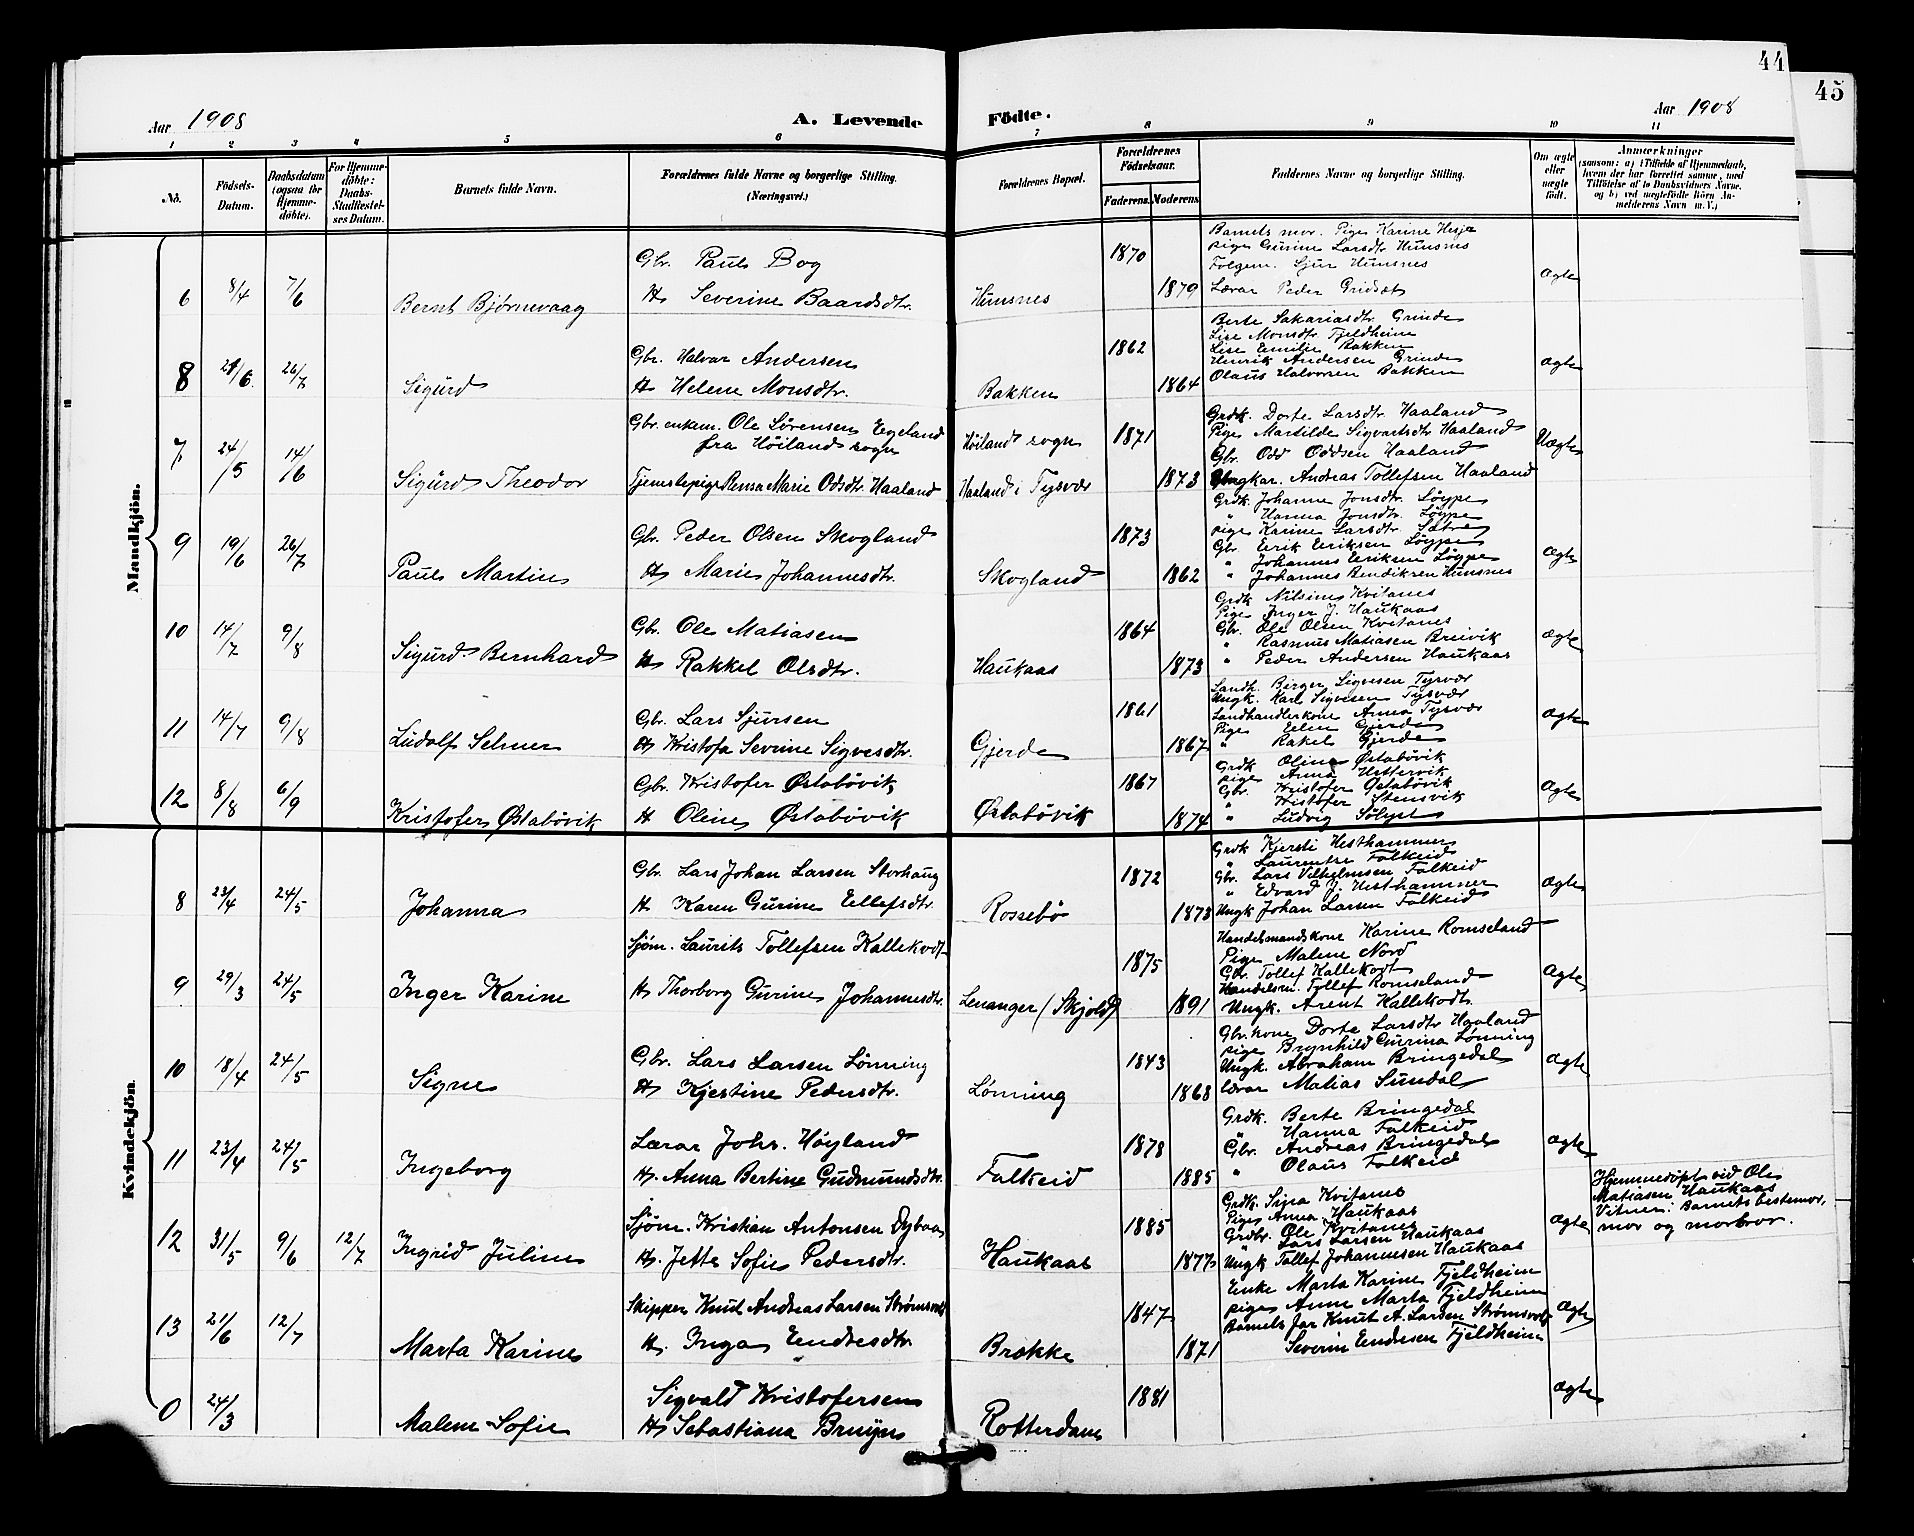 44
45
Aar 1908
A. Levende Fødte.
Aar 1908
1 2 3 4 5 6 7 8 9 10 11
No.
Födsels-Datum.
Daabsdatum (ogsaa for Hjemmedöbte).
For Hjemmedöbte: Daabs-Stadfæstelses Datum.
Barnets fulde Navn.
Forældrenes fulde Navne og borgerlige Stilling. (Næringsvei.)
Forældrenes Bopæl.
Forældrenes Födselsaar.
Faderens. Moderens.
Faddernes Navne og borgerlige Stilling.
Om ægte eller uægte födt.
Anmærkninger
(saasom: a) i Tilfælde af Hjemmedaab, hvem der har forrettet samme, med Tilföielse af to Daabsvidners Navne, og b) ved uægtefödte Börn Anmelderens Navn m. V.)
Mandkjön.
6 8/4 7/6 Bernt Bjørnevaag
Gbr. Paul Bog
H. Severine Baardsdtr.
Humsnes 1870 1879
Barnets mor. Pige Karine Hesja
pige Gurine Larsdtr Humsnes
Folgem. Sjur Humsnes
Lærar Peder Gridset
ægte
8 21/6 26/7 Sigurd
Gbr. Halvar Andersen
H. Helene Monsdtr.
Bakken 1862 1864
Berte Sakariasdtr. Grinde
Lise Monsdtr. Fjeldheim
Lise Emilie Bakken
Henrik Andersen Grinde
Olaus Halvorsen Bakken
ægte
7 24/5 14/6 Sigurd Theodor
Gbr. enkem. Ole Sørensen Egeland
fra Höiland sogn
Tjenestepige Rensa Marie Odsdtr. Haaland
Höiland sogn
Haaland i Tysvær
1871 1873
Grdk. Dorte Larsdtr Haaland
Pige Martilde Sigvartsdtr Haaland
Gbr. Odd Oddsen Haaland
Ungkar. Andreas Tollefsen Haaland
Uægte
9 19/6 26/7 Paul Martin
Gbr. Peder Olsen Skogland
H. Marie Johannesdtr.
Skogland 1873 1862
Grdk. Johanne Jonsdtr. Løype
" Hanna Jonsdtr. Løype
pige Karine Larsdtr. Sætre
Gbr Eerik Eeriksen Løype
" Johannes Eeriksen Løype
" Johannes Bendiksen Humsnes
ægte
10 14/7 9/8 Sigurd Bernhard
Gbr. Ole Matiasen
H. Rakkel Olsdtr.
Haukaas 1864 1873
Grdk Nilsine Kvitanes
Pige Inger J. Haukaas
Gbr. Ole Olsen Kvitanes
" Rasmus Matiasen Breivik
" Peder Andersen Haukaas
ægte
11 14/7 9/8 Ludolf Selmer
Gbr. Lars Sjursen
H. Kristofa Severine Sigvesdtr.
Gjerde 1861 1867
Landh. Birger Sigvesen Tysvær
Ungk. Karl Sigvesen Tysvær
Landhandlerkone Anna Tysvær
Pige Elen Gjerde
" Rakel Gjerde
ægte
12 8/8 6/9 Kristofer Østabövik
Gbr. Kristofer Østabövik
H. Oline Østabövik
Østabövik 1867 1874
Grdk Oline Østabövik
pige Anna Hettervik
Gbr. Kristofer Østabövik
" Kristofer Stensvik
" Ludvig Sölyst
ægte
Kvindekjön.
8 23/4 24/5 Johanna
Gbr. Lars Johan Larsen Storhaug
H. Karen Gurine Ellefsdtr.
Rossebö 1872 1873
Grdk Kjersti Hesthammer
" Laurentse Falkeid
Gbr. Lars Vilhelmsen Falkeid
" Edvard J. Hesthammer
Ungk Johan Larsen Falkeid
ægte
9 29/3 24/5 Inger Karine
Sjøm. Laurits Tollefsen Kallekodt
H. Thorborg Gurine Johannesdtr.
Lenanger (Skjold) 1875 1891
Handelsmandskone Karine Romseland
Pige Malene Nord
Gbr. Tollef Kallekodt
Handelsm. Tollef Romseland
Ungk. Arent Kallekodt.
ægte
10 18/4 24/5 Signe
Gbr. Lars Larsen Lönning
H. Kjestine Pedersdtr.
Lönning 1843 1868
Gbr. kone Dorte Larsdtr Haaland
pige Brynhild Gurina Lönning
Ungk. Abraham Bringedal
lærar Matias Sundal
ægte
11 23/4 24/5 Ingeborg
Lærar Johs. Höyland
H. Anna Bertine Gudmundsdtr.
Falkeid 1878 1885
Grdk. Berte Bringedal
" Hanna Falkeid
Gbr. Andreas Bringedal
" Olaus Falkeid
ægte
12 31/5 9/6 12/7 Ingrid Juline
Sjøm. Kristian Antonsen Dybaa
H. Jette Sofie Pedersdtr.
Haukaas 1885 1877
Grdk. Sina Kvitanes
Pige Anna Haukaas
Grdbr. Ole Kvitanes
" Lars Larsen Haukaas
Ungk Tollef Johannesen Haukaas
ægte
Hjemmedöpt ved Ole
Matiasen Haukaas
Vitner: Barnets bestemor,
mor og morbror.
13 21/6 12/7 Marta Karine
Skipper Knut Andreas Larsen Strømsvold
H. Inga Endresdtr.
Brække 1847 1871
Enke Marta Karine Fjeldheim
pige Anne Marta Fjeldheim
Barnets far Knut A. Larsen Strømsvold
Severin Endresen Fjeldheim
ægte
0 24/3 Malene Sofie
Sigvald Kristofersen
H. Sebastiana Bruijn
Rotterdam 1881
ægte